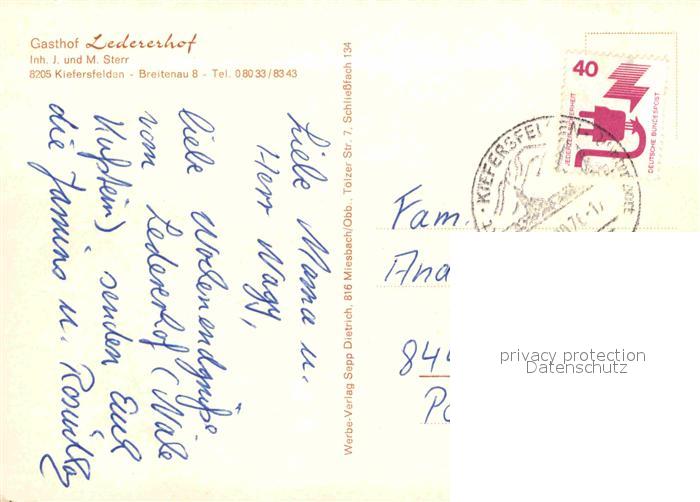 Gasthof Ledererhof
Inh. J. und M. Sterr
8205 Kiefersfelden - Breitenau 8 - Tel. 0 80 33 / 83 43
Liebe Mama u.
Herr Nagy,
liebe Wochenendgrüße
vom Ledererhof (Nähe
Kufstein) senden Euch
die
Werbe-Verlag Sepp Dietrich, 816 Miesbach/Obb., Tölzer Str. 7, Schließfach 134
40
JEDERZEIT SICHERHEIT
DEUTSCHE BUNDESPOST
KIEFERSFELDEN
Fam.
Ana
844
privacy protection
Datenschutz